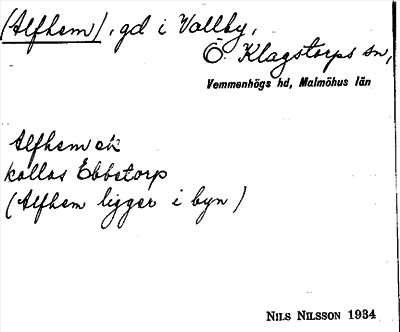 (Alfhem), gd i Vallby,
Ö. Klagstorps sn,
Vemmenhögs hd, Malmöhus län
Alfhem
kallas Ebbetorp
(Alfhem ligger i byn)
NILS NILSSON 1934